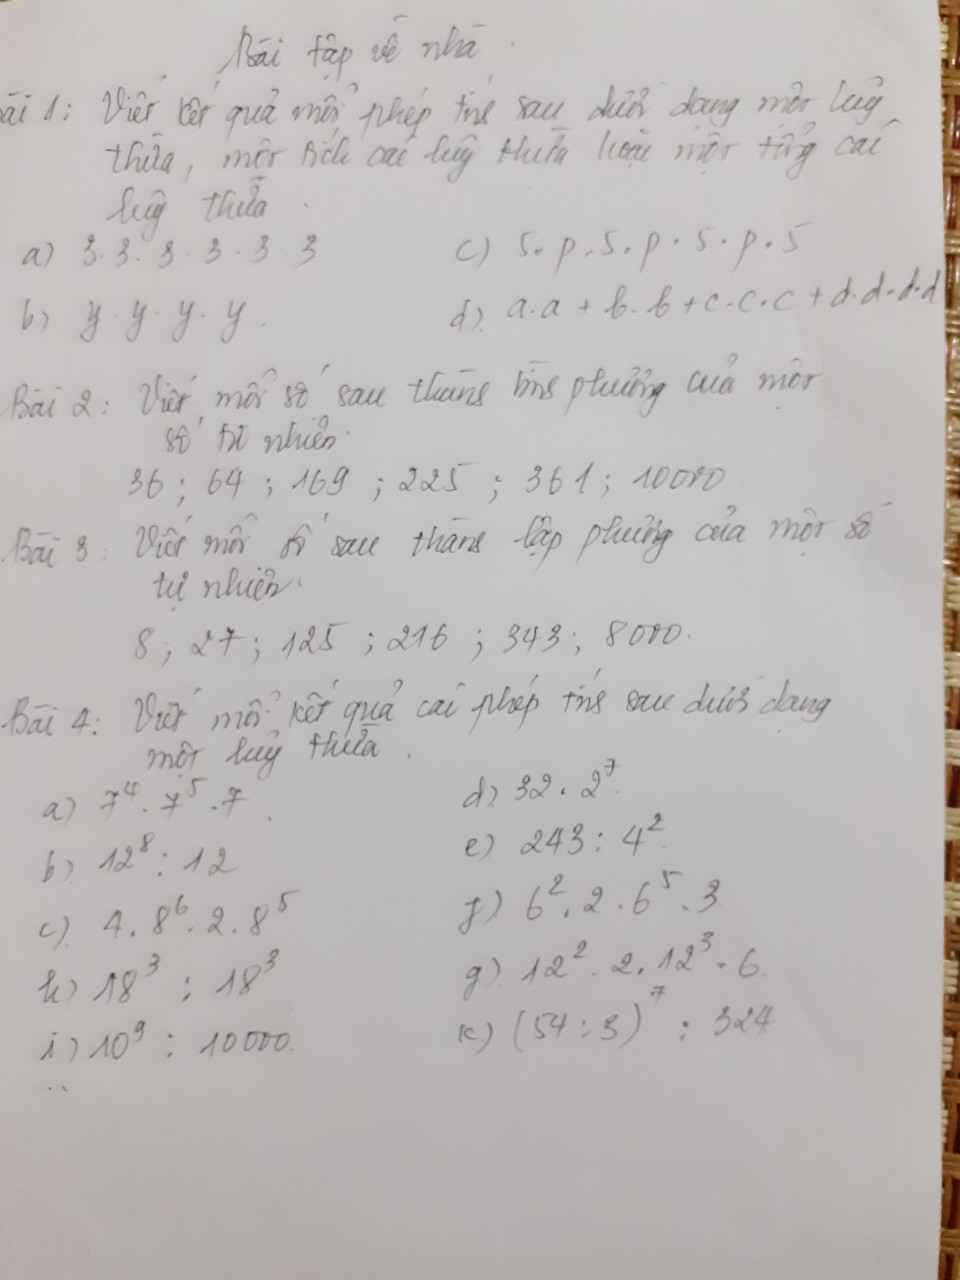 Bài tập về nhà.
Bài 1: Viết kết quả mỗi phép tính sau dưới dạng một luỹ
thừa, một tích các luỹ thừa hoặc một tổng các
luỹ thừa.
a) 3.3.3.3.3.3 c) 5.p.5.p.5.p.5
b) y.y.y.y. d) a.a + b.b + c.c.c + d.d.d.d
Bài 2: Viết mỗi số sau thành bình phương của một
số tự nhiên.
36 ; 64 ; 169 ; 225 ; 361 ; 10000
Bài 3: Viết mỗi số sau thành lập phương của một số
tự nhiên.
8 ; 27 ; 125 ; 216 ; 343 ; 8000.
Bài 4: Viết mỗi kết quả các phép tính sau dưới dạng
một luỹ thừa.
a) 7⁴.7⁵.7 d) 32.2⁷
b) 12⁸ : 12 e) 243 : 4²
c) 4.8⁶.2.8⁵ f) 6².2.6⁵.3
h) 18³ : 18³ g) 12².2.12³.6.
i) 10⁹ : 10000. k) (54 : 3)⁷ : 324